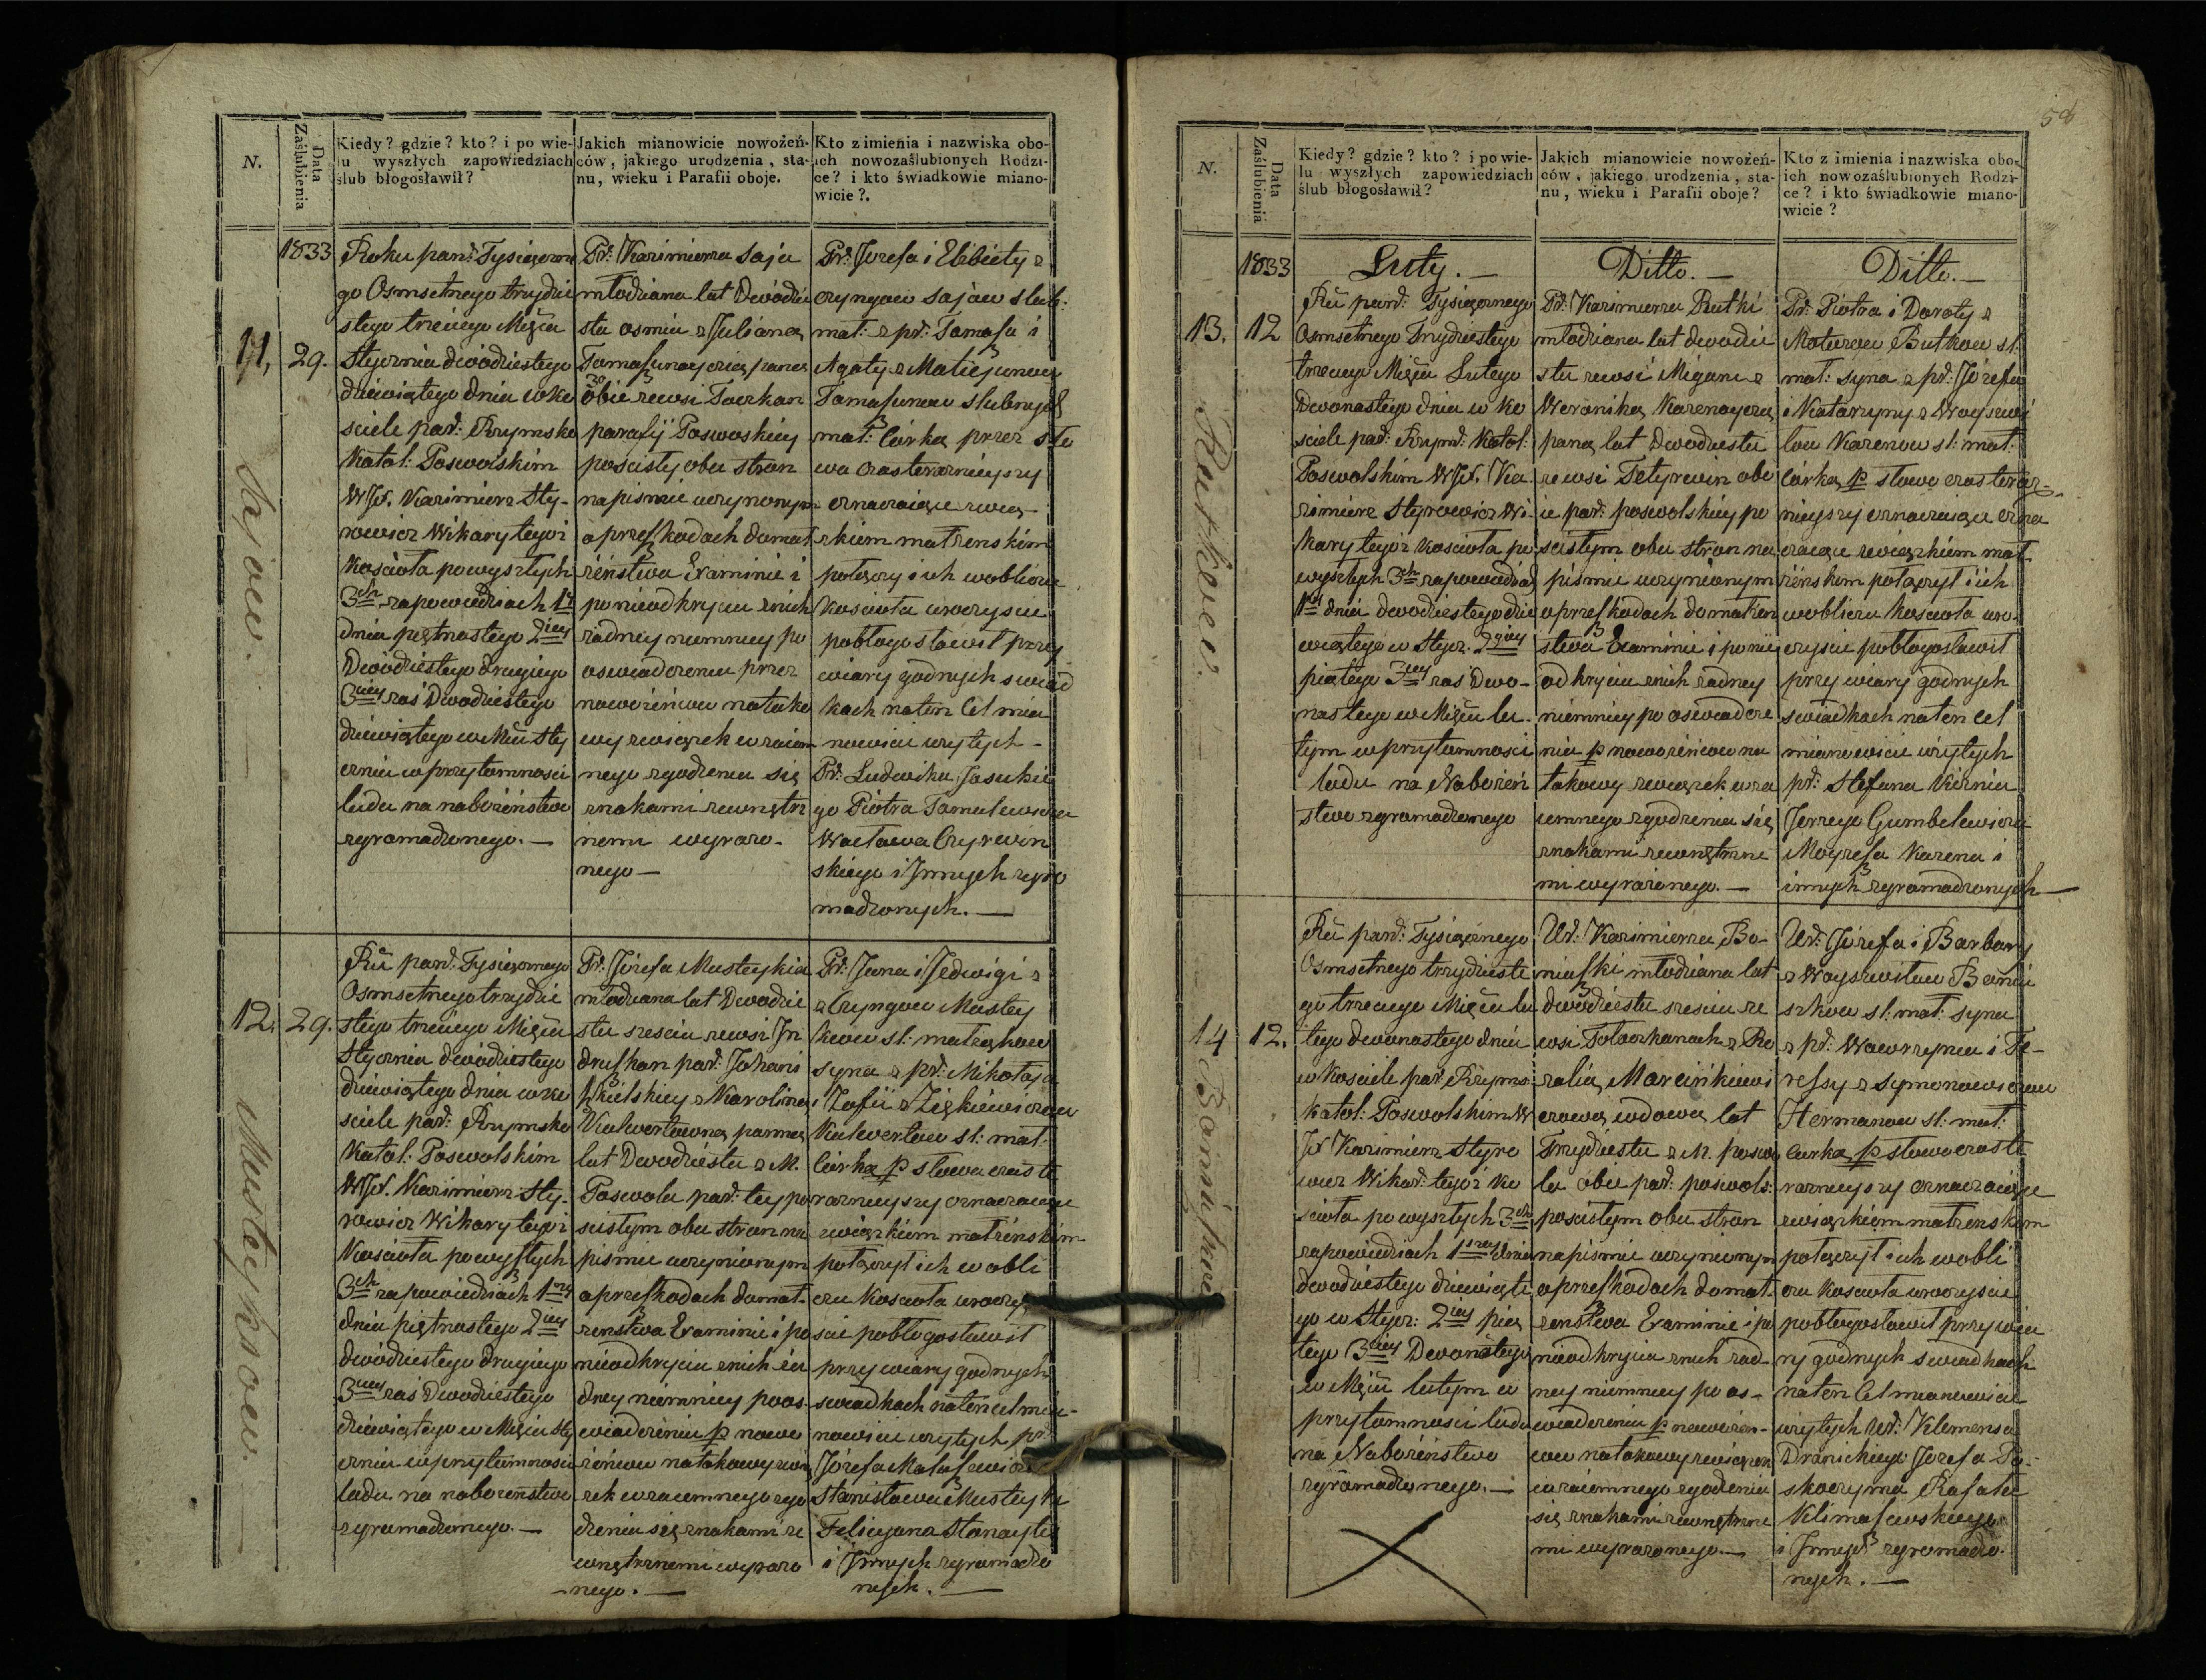 N.
Data
Zaślubienia
Kiedy? gdzie? kto? i po wie-
lu wyszłych zapowiedziach
ślub błogosławił?
Jakich mianowicie nowożeń-
ców, jakiego urodzenia, sta-
nu, wieku i Parafii oboje.
Kto z imienia i nazwiska obo-
ich nowozaślubionych Rodzi-
ce? i kto świadkowie miano-
wicie?.
1833
11,
29.
Sajow.
Roku pań: Tysiączne
go Osmsetnego trzydzie
stego trzeciego Mięca
Stycznia dwódziestego
dziewiątego dnia w ko
sciele par: Rzymsko
Katol: Poswolskim
WJX. Kazimierz Sty-
rowicz Wikary tegoż
Kościoła po wyszłych
3ch zapowiedziach 1ey
dnia piętnastego 2iey
Dwódziestego drugiego
3ciey zaś Dwódziestego
dziewiątego w Mcu Sty
czniu w przytomnosci
ludu na nabożeństwo
zgromadzonego. —
Pr: Kazimierza Saja
młodziana lat Dwódzie
stu osmiu z Julianą
panną
obie ze wsi
parafij Poswolskiey
po scisłym obu stron
na pismie uczynionym
o przeszkodach do mał
żeństwa Examinie i
po nieodkryciu z nich
żadney niemniey po
oswiadczeniu przez
nowożeńców na tako
wy związek wzaiem
nego zgodzenia się
znakami zewnętrz
nemi wyrażo-
nego —
Pr: Jozefa i Elżbiety z
Czyngow Sajow slub:
mał: z pr: Tomasza i
Agaty z
slubnych
mał: Córką przez sło
wa czasteraznieyszy
oznaczaiące zwią-
zkiem małżenskim
połączy i ich wobliczu
Kościoła uroczyscie
pobłogosławił przy
wiary godnych swiad
kach na ten Cel mia
nowicie wzytych -
Pr: Ludwika
go Piotra
Wacława
skiego i Innych zgro
madzonych. —
12.
29.
Musteykow.
Ru pań: Tysiącznego
Osmsetnego trzydzie
stego trzeciego Mięca
Stycznia dwódziestego
dziewiątego dnia w ko
sciele par: Rzymsko
Katol: Poswolskim
WJX. Kazimierz Sty-
rowicz Wikary tegoż
Kościoła po wyszłych
3ch zapowiedziach 1ey
dnia piętnastego 2iey
dwódziestego drugiego
3ciey zaś Dwódziestego
dziewiątego w Mięcu Sty
czniu w przytomnosci
ludu na nabożeństwo
zgromadzonego. —
Pr: Józefa Musteykia
młodziana lat Dwódzie
stu szesciu ze wsi In
druszkan par: Johani
szkielskiey z Karoliną
Kulwertowną panną
lat Dwódziestu z M.
Poswola par: tey po
scisłym obu stron na
pismie uczynionym
o przeszkodach do mał-
żenstwa Examinie i po
nieodkryciu z nich ża
dney niemniey po os-
wiadczeniu p nowo
żeńcow na takowy zwią
zek wzaiemnego zgo
dzenia się znakami ze
wnętrznemi wyrażo
-nego. —
Pr: Jana i Jedwigi z
z Czyngow Mustey
kow sł: małżąkow
syna z pr: Mikołaja
i Zofii z Ziękiewiczow
Kulwertow sł: mał-
Córką p słowa czaste
raznieyszy oznaczaiące
związkiem małżeńskim
połączył ich w obli
czu Kościoła uroczy
scie pobłogosławił
przy wiary godnych
swiadkach na ten cel mia-
nowicie wzytych pr:
Józefa
Stanisława Musteyki
Felicyana
i Innych zgromadzo
nych. —
58
N.
Data
Zaślubienia
Kiedy? gdzie? kto? i po wie-
lu wyszłych zapowiedziach
ślub błogosławił?
Jakich mianowicie nowożeń-
ców, jakiego urodzenia, sta-
nu, wieku i Parafii oboje?
Kto z imienia i nazwiska obo-
ich nowozaślubionych Rodzi-
ce? i kto świadkowie miano-
wicie?
1833
Luty. —
Ditto. —
Ditto. —
13.
12
Ru pań: Tysiącznego
Osmsetnego Trzydziestego
trzeciego Mięca Lutego
Dwonastego dnia w ko
sciele par: Rzym: Katol:
Poswolskim WJX. Ka
zimierz Styrowicz Wi-
kary tegoż Kościoła po
wyszłych 3ch zapowiedziach
1ey dnia dwódziestego dzie
wiątego w Stycz. 2giey
piątego 3ciey zaś Dwo-
nastego w Mięcu Lu-
tym w przytomnosci
ludu na Nabożeń
stwo zgromadzonego
Pr: Kazimierza Rutki
młodziana lat dwódzie
stu ze wsi Migoniz
Weroniką
paną lat Dwódziestu
ze wsi Tetyrwin obo
ie par: poswolskiey po
scisłym obu stron na
pismie uczynionym
o przeszkodach do małżen
stwa Examinie i po nie
odkryciu z nich żadney
niemniey po oswiadcze
niu p nowożeńcow na
takowy związek wza
iemnego zgodzenia się
znakami zewnętrzne
mi wyrażonego. —
Pr: Piotra i Doroty z
sł:
mał: syna z pr: Józefa
i Katarzyny z
Karenow sł: mał:
Córką p słowo czasteraz-
nieyszy oznaczaiące ozna
czaiące związkiem mał
żenskim połączył i ich
w obliczu Kościoła uro-
czyscie pobłogosławił
przy wiary godnych
swiadkach na ten cel
mianowicie wzytych
pr: Stefana
Jerzego Gumbelewicza
Moyżesza Karena i
innych zgromadzonych —
14
12.
Baniszkow
Ru pań: Tysiącznego
Osmsetnego trzydzieste
go trzeciego Mięca Lu
tego dwonastego dnia
w kosciele par: Rzyms:
Katol: Poswolskim W
JX Kazimierz Styro
wicz Wikar: tegoż ko
scioła po wyszłych 3ch
zapowiedziach 1szey dnia
dwódziestego dziewiąte
go w Stycz: 2iey pią
tego 3ciey Dwonastego
w Mięcu lutym w
przytomnosci ludu
na Nabożeństwo
zgromadzonego. —
Ur: Kazimierza Ba-
niszki młodziana lat
dwódziestu szesciu ze
wsi z Ro
zalią Marcinkiewi
czową wdową lat
Trzydziestu z M. poswo
la obie par: poswols:
po scisłym obu stron
na pismie uczynionym
o przeszkodach do mał-
żenstwa Examinie i po
nieodkryciu z nich żad-
ney niemniey po os-
wiadczeniu p nowożeń-
cow na takowy związek
wzaiemnego zgodzenia
się znakami zewnętrzne
mi wyrażonego. —
Ur: Józefa i Barbary
z Woyszwiłow Bani
szkow sł: mał: syna
z pr: Wawrzynca i Te-
ressy z Symonowiczow
Hermanow sł: mał:
Corką p słowo czaste
raznieyszy oznaczaiące
związkiem małżenskim
połączył i ich w obli
czu Kościoła uroczyscie
pobłogosławił przy wia
ry godnych swiadkach
na ten Cel mianowicie
wzytych Ur: Klemensa
Józefa
Rafała
Klimaszewskiego
i Innych zgromadzo-
nych. —